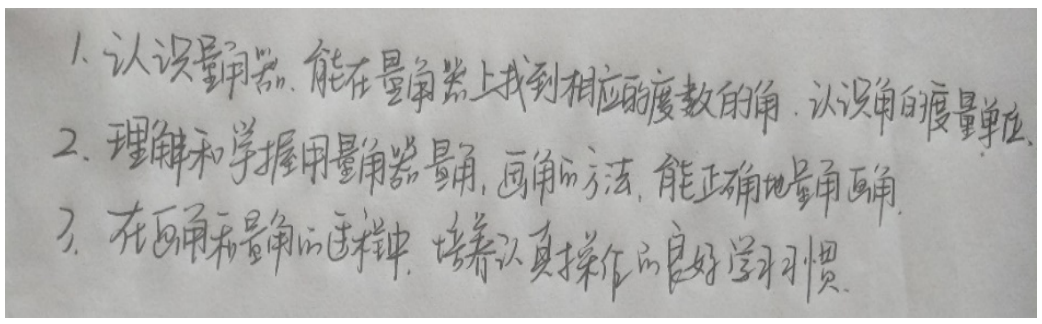 1. 认识量角器、能在量角器上找到相应的度数的角.认识角的度量单位、
2、理解和掌握用量角器量角,画角的方法,能正确地量角画角.
3、在画角和量角的过程中,培养认真操作的良好学习习惯.